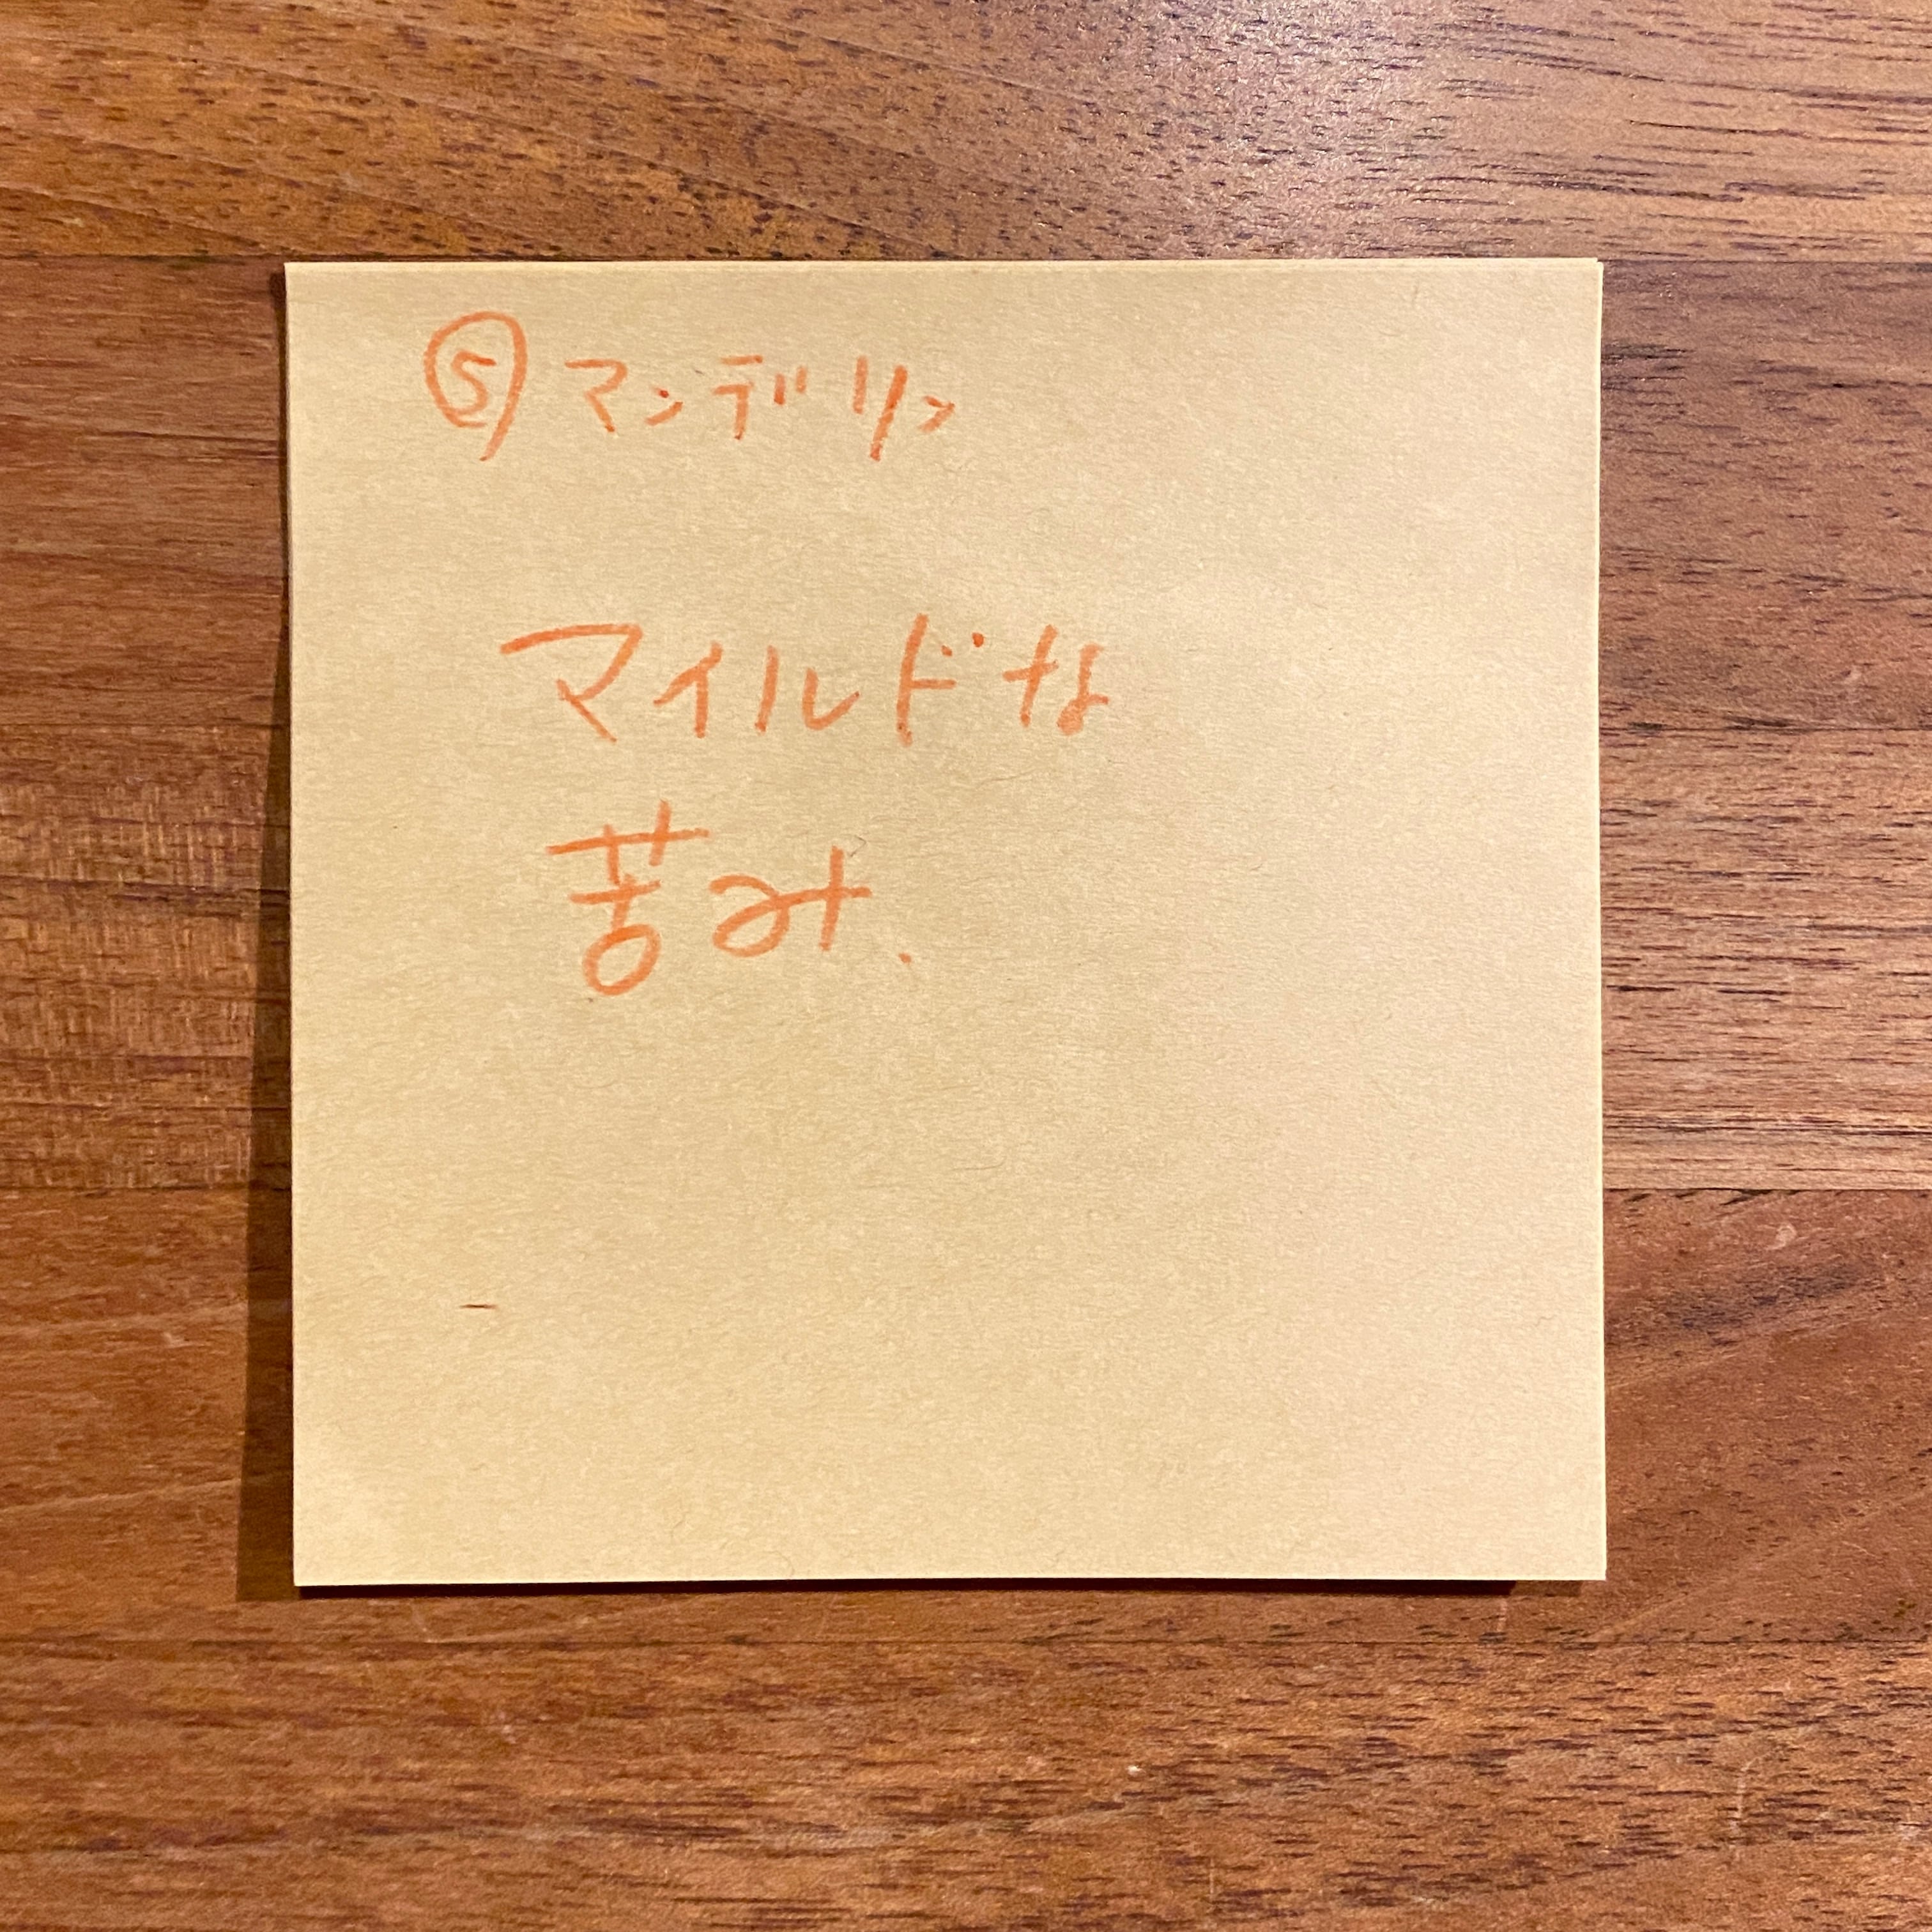 ⑤ マンデリン
マイルドな
苦み.